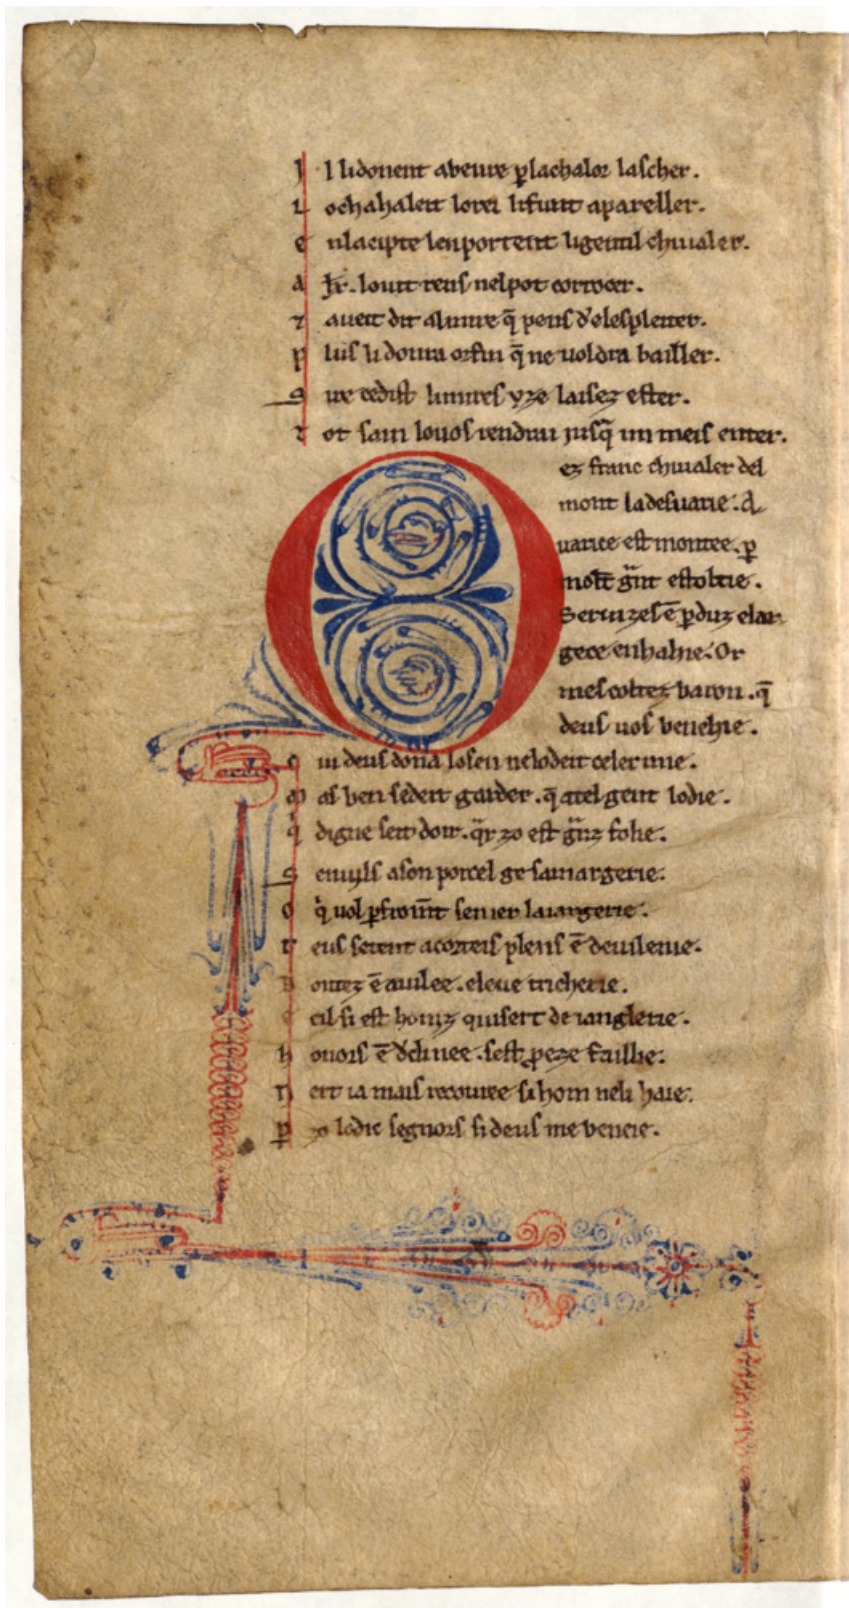 I l lidonent abeure ꝑ lachalor lascher.
L ochahaleit lorei lifunt apareller.
E nlacipte lenportent ligentil chiualer.
A louit reus nelpot corrocer.
⁊ aueit dit alimire q̄ pens delespleiter.
P lus li donra orfin q̄ ne uoldra bailler.
Q ue cedist limires yze laisez ester.
T ot sain louos rendrai iusq̄ un meis enter.
O ez franc chiualer del
mont ladesuarie. A
uarice est montee. ꝑ
molt estoltie.
Seruizes ē ꝑduz elar
gece enbahie. Or
mescoltez baron. q̄
deus uos benehie.
Q ui deus dona losen nelodeit celer mie.
M as ben sedeit garder. q̄ atel gent lodie.
digne seit doir. zo est folie.
S emyls ason porcel ge samargerie.
O uol semer lamargerie.
T eus serent acorteis plens ē deuilenie.
B ontez ē auilee. eleue tricherie.
E cil si est honiz quisert de ianglerie.
H onors ē declinee. sest ꝓeze faillie.
N ert ia mais recouree si hom neli haie.
P zo lodie segnors si deus me beneie.